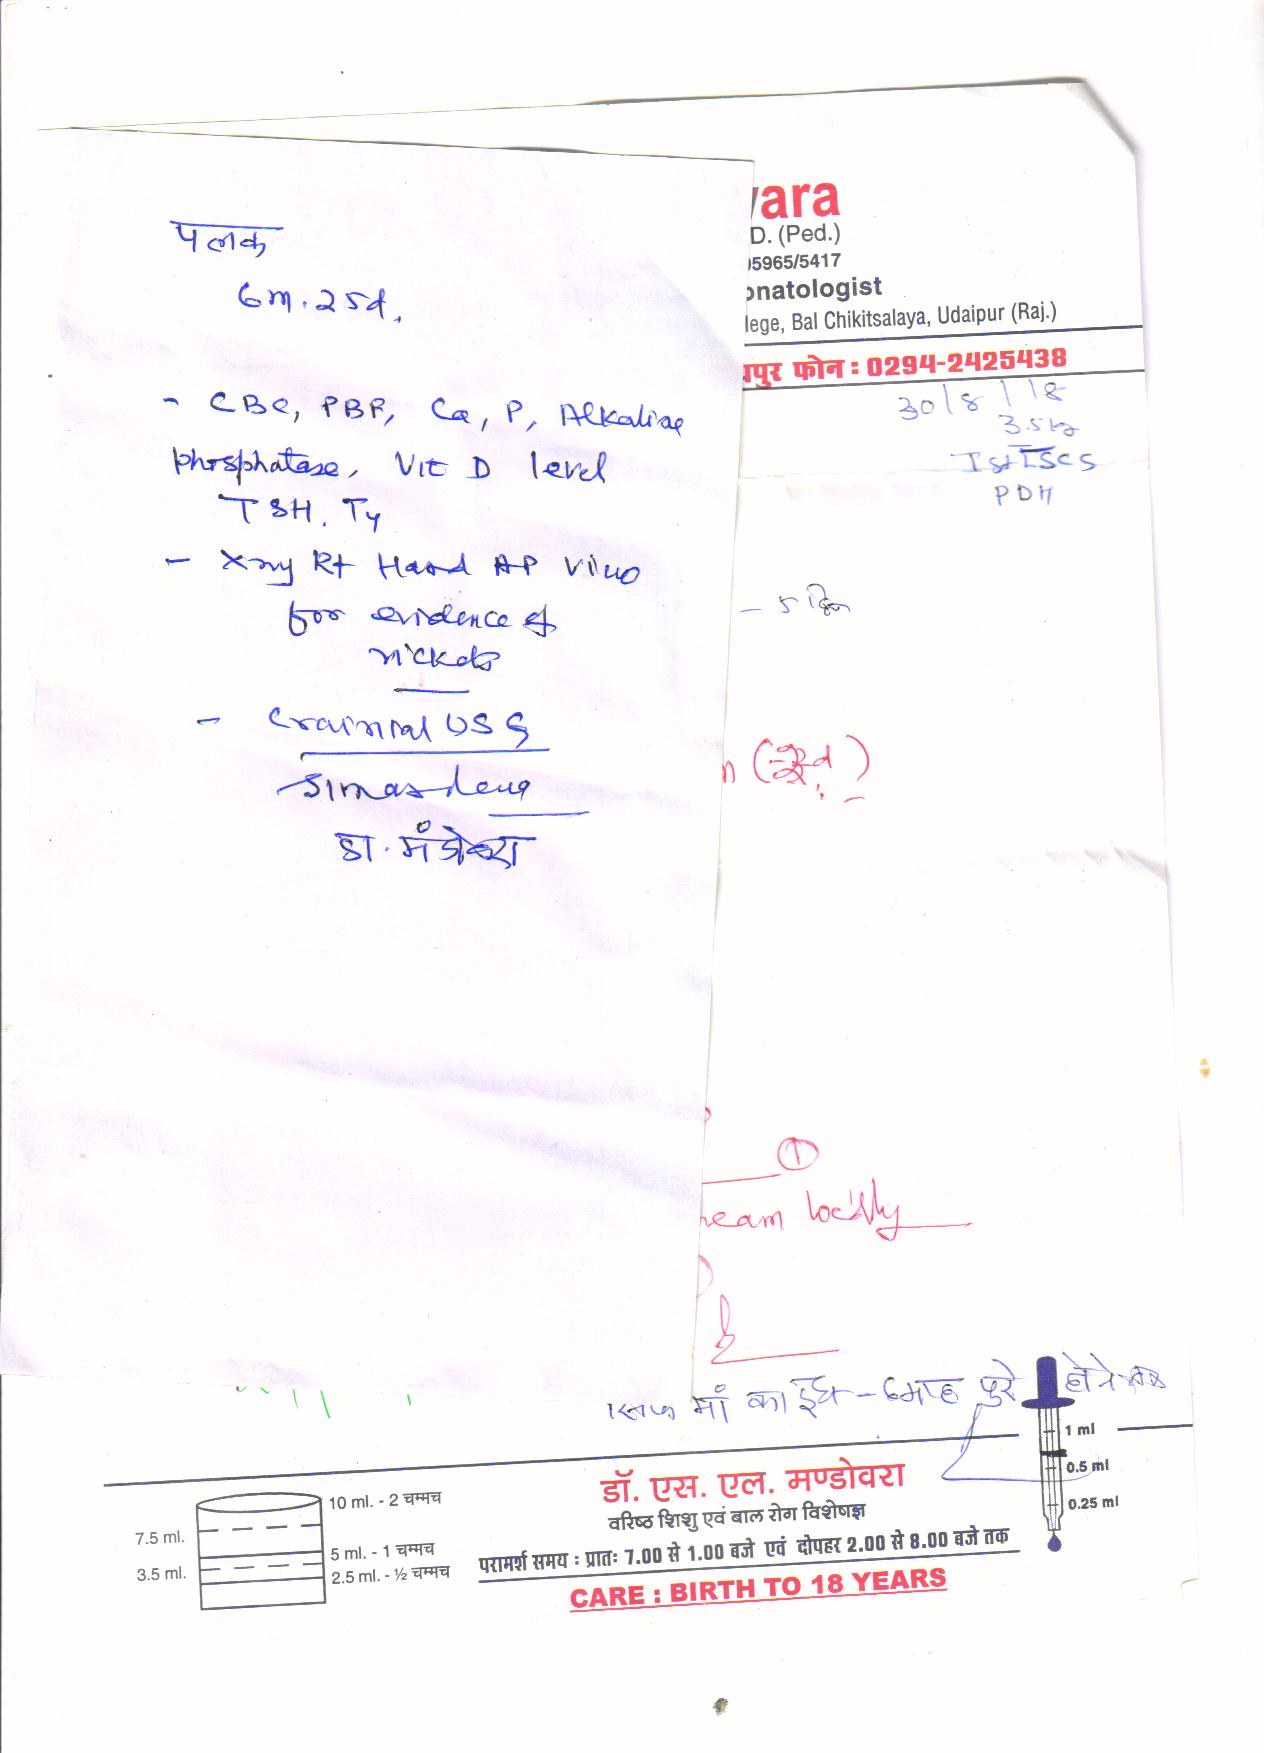 पलक
6m. 25d.
- CBC, PBF, Ca, P, Alkaline
phosphatase, Vit D level
TSH, T4
- Xray Rt Hand AP View
for evidence of
rickets
- Crainial USG
डा. मंडोवरा
vara
D. (Ped.)
05965/5417
onatologist
lege, Bal Chikitsalaya, Udaipur (Raj.)
यपुर फोन : 0294-2425438
30/8/18
3.5 kg
Ist LSCS
PDH
- 5 दिन
1
ream locally
मां का दूध - 6 माह पुरे होने तक
1 ml
0.5 ml
0.25 ml
10 ml. - 2 चम्मच
7.5 ml.
5 ml. - 1 चम्मच
3.5 ml.
2.5 ml. - ½ चम्मच
डॉ. एस. एल. मण्डोवरा
वरिष्ठ शिशु एवं बाल रोग विशेषज्ञ
परामर्श समय : प्रातः 7.00 से 1.00 बजे एवं दोपहर 2.00 से 8.00 बजे तक
CARE : BIRTH TO 18 YEARS